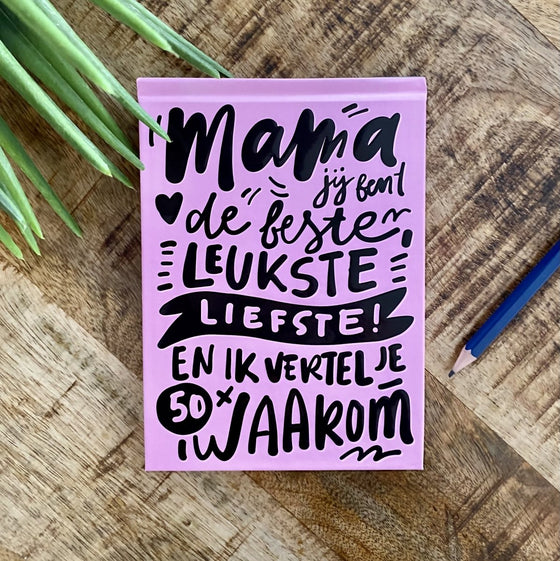 Mama
jij bent
de beste
LEUKSTE
LIEFSTE!
EN IK VERTEL JE
50x
WAAROM